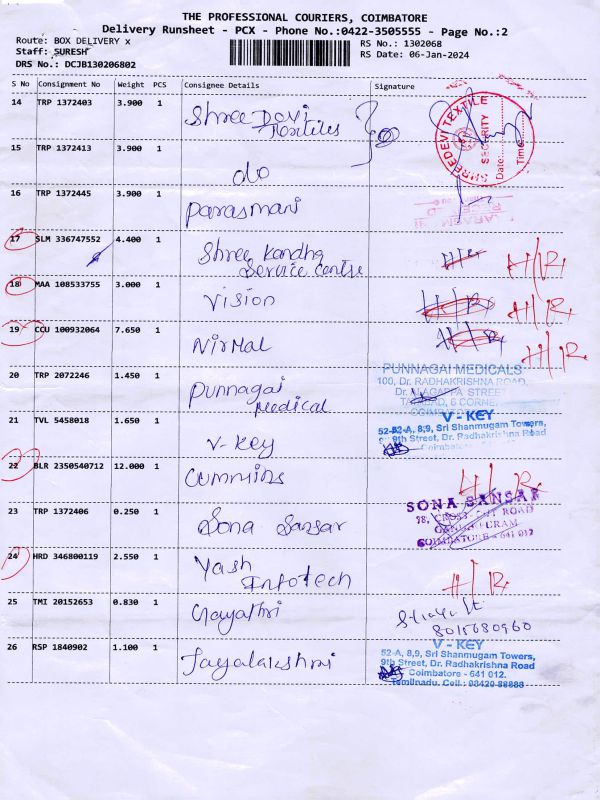 THE PROFESSIONAL COURIERS, COIMBATORE
Delivery Runsheet - PCX - Phone No.:0422-3505555 - Page No.:2
Route: BOX DELIVERY x
Staff: SURESH
DRS No.: DCJB130206802
RS No.: 1302068
RS Date: 06-Jan-2024
S No Consignment No Weight PCS Consignee Details Signature
14 TRP 1372403 3.900 1 Shree Devi
Textiles
SHREEDEVI TEXTILE
SECURITY
Date:
Time:
15 TRP 1372413 3.900 1 do
16 TRP 1372445 3.900 1 Parasmani
17 SLM 336747552 4.400 1 Shree Kandha
Service Centre H/R
18 MAA 108533755 3.000 1 Vision H/R H/R
19 CCU 100932064 7.650 1 Nirmal H/R H/R
20 TRP 2072246 1.450 1 Punnagai
Medical
PUNNAGAI MEDICALS
100, Dr. RADHAKRISHNA ROAD,
Dr. ALAGAPPA STREET
21 TVL 5458018 1.650 1 V-Key
V - KEY
52-A, 8,9, Sri Shanmugam Towers,
9th Street, Dr. Radhakrishna Road
Coimbatore
22 BLR 2350540712 12.000 1 Cummins H/R
23 TRP 1372406 0.250 1 Sona Sansar
SONA SANSAR
78, CROSS CUT ROAD
GANDHIPURAM
COIMBATORE - 641 012
24 HRD 346800119 2.550 1 Yash
Infotech H/R
25 TMI 20152653 0.830 1 Gayathri
8015680960
26 RSP 1840902 1.100 1 Jayalakshmi
V - KEY
52-A, 8,9, Sri Shanmugam Towers,
9th Street, Dr. Radhakrishna Road
Coimbatore - 641 012.
Tamilnadu. Cell : 98420 88888